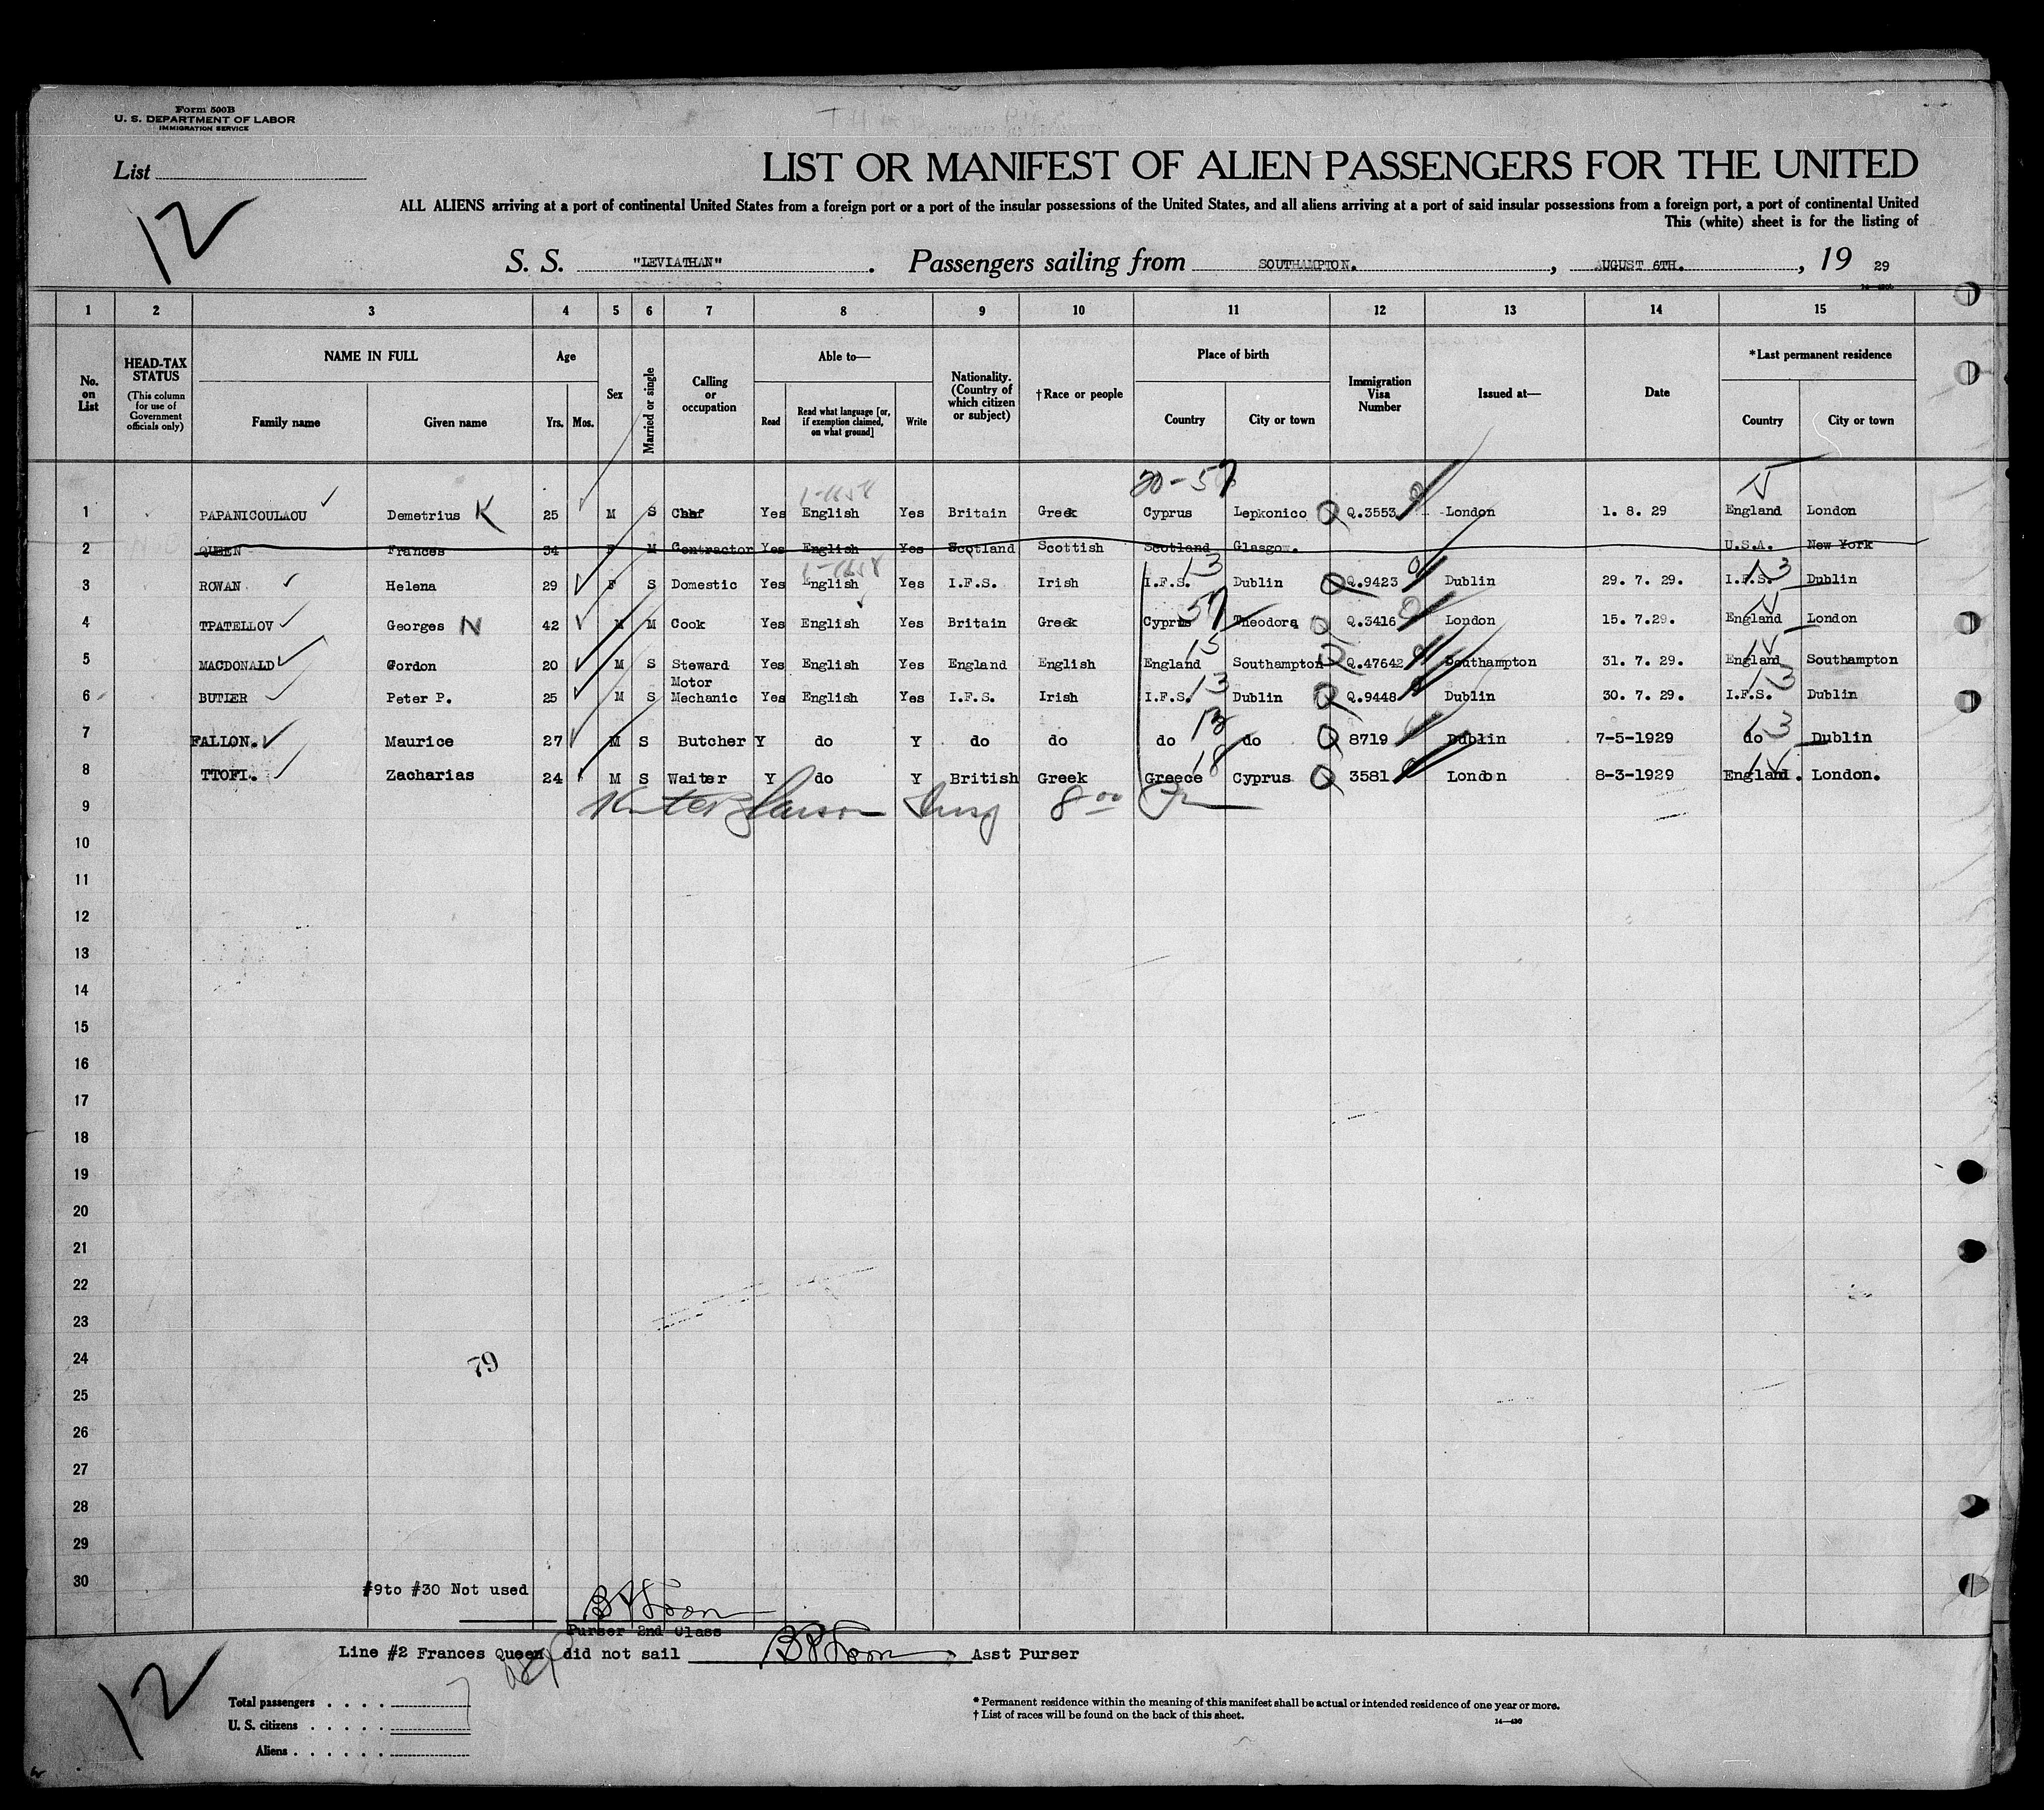 Form 500B
U. S. DEPARTMENT OF LABOR
IMMIGRATION SERVICE
List
12
LIST OR MANIFEST OF ALIEN PASSENGERS FOR THE UNITED
ALL ALIENS arriving at a port of continental United States from a foreign port or a port of the insular possessions of the United States, and all aliens arriving at a port of said insular possessions from a foreign port, a port of continental United
This (white) sheet is for the listing of
S. S. "LEVIATHAN" . Passengers sailing from SOUTHAMPTON. , AUGUST 6TH. , 19 29
1 2 3 4 5 6 7 8 9 10 11 12 13 14 15
No. on List
HEAD-TAX STATUS (This column for use of Government officials only)
NAME IN FULL Family name Given name
Age Yrs. Mos.
Sex
Married or single
Calling or occupation
Able to— Read Read what language [or, if exemption claimed, on what ground] Write
Nationality. (Country of which citizen or subject)
†Race or people
Place of birth Country City or town
Immigration Visa Number
Issued at—
Date
*Last permanent residence Country City or town
20-57
1 PAPANICOULAOU Demetrius K 25 M S Chef Yes English Yes Britain Greek Cyprus Lepkonico Q.3553 London 1. 8. 29 England London
2 QUEEN Frances 34 F M Contractor Yes English Yes Scotland Scottish Scotland Glasgow. U.S.A. New York
3 ROWAN Helena 29 F S Domestic Yes English Yes I.F.S. Irish I.F.S. 13 Dublin Q.9423 Dublin 29. 7. 29. I.F.S. 13 Dublin
4 TPATELLOV Georges N 42 M M Cook Yes English Yes Britain Greek Cyprus 57 Theodora Q.3416 London 15. 7.29. England London
5 MACDONALD Gordon 20 M S Steward Yes English Yes England English England 15 Southampton Q.47642 Southampton 31. 7. 29. England Southampton
6 BUTLER Peter P. 25 M S Motor Mechanic Yes English Yes I.F.S. Irish I.F.S. 13 Dublin Q.9448 Dublin 30. 7. 29. I.F.S. 13 Dublin
7 FALLON. Maurice 27 M S Butcher Y do Y do do do 13 do Q 8719 Dublin 7-5-1929 do 3 Dublin
8 TTOFI. Zacharias 24 M S Waiter Y do Y British Greek Greece 18 Cyprus Q 3581 London 8-3-1929 England. London.
9
8 00
10
11
12
13
14
15
16
17
18
19
20
21
22
23
24
79
25
26
27
28
29
30
#9to #30 Not used
Purser 2nd Class
Line #2 Frances Queen did not sail Asst Purser
12
Total passengers . . . . 7
U. S. citizens . . . . .
Aliens . . . . . .
* Permanent residence within the meaning of this manifest shall be actual or intended residence of one year or more.
† List of races will be found on the back of this sheet.
14—430